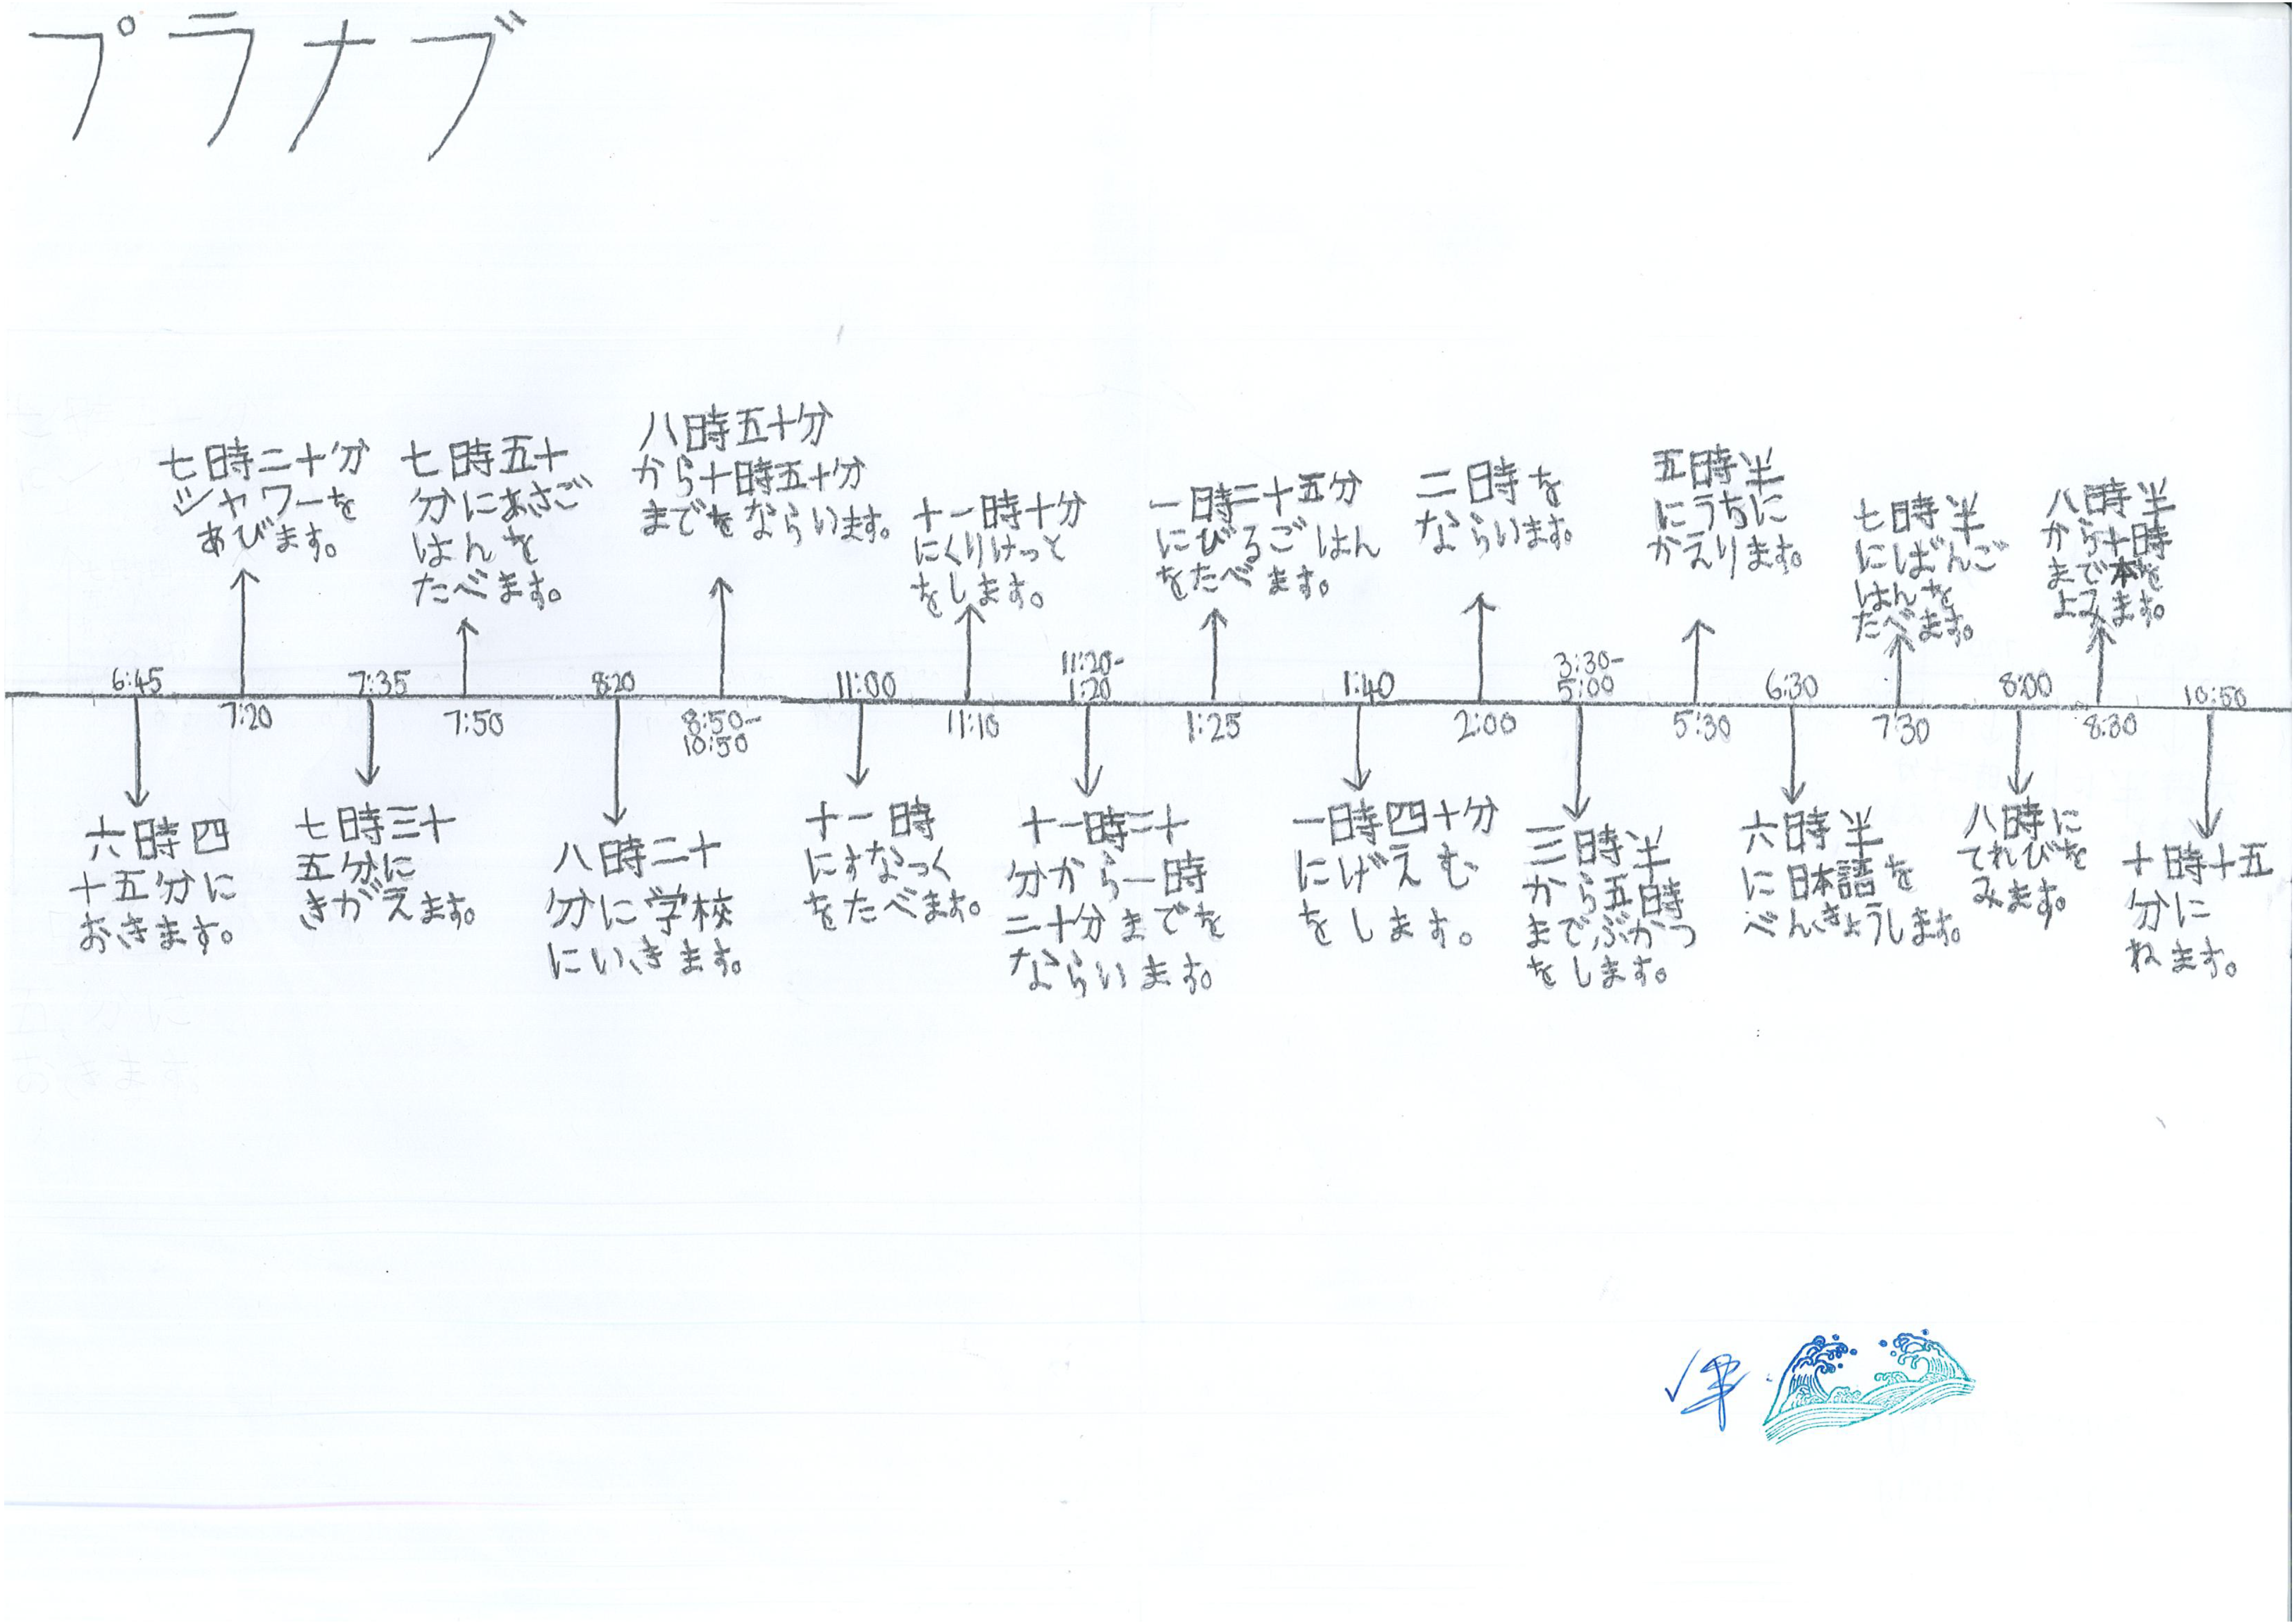 プラナブ
七時二十分
シャワーを
あびます。
七時五十
分にあさご
はんを
たべます。
八時五十分
から十時五十分
までをならいます。
十一時十分
にくりけっと
をします。
一時二十五分
にびるごはん
をたべます。
二時を
ならいます。
五時半
にうちに
かえります。
七時半
にばんご
はんを
たべます。
八時半
から十時
まで本を
よみます。
6:45
7:20
7:35
7:50
8:20
8:50-
10:50
11:00
11:10
11:20-
1:20
1:25
1:40
2:00
3:30-
5:00
5:30
6:30
7:30
8:00
8:30
10:50
六時四
十五分に
おきます。
七時三十
五分に
きがえます。
八時二十
分に学校
にいきます。
十一時
にすなっく
をたべます。
十一時二十
分から一時
二十分までを
ならいます。
一時四十分
にげえむ
をします。
三時半
から五時
まで、ぶかつ
をします。
六時半
に日本語を
べんきょうします。
八時に
てれびを
みます。
十時十五
分に
ねます。